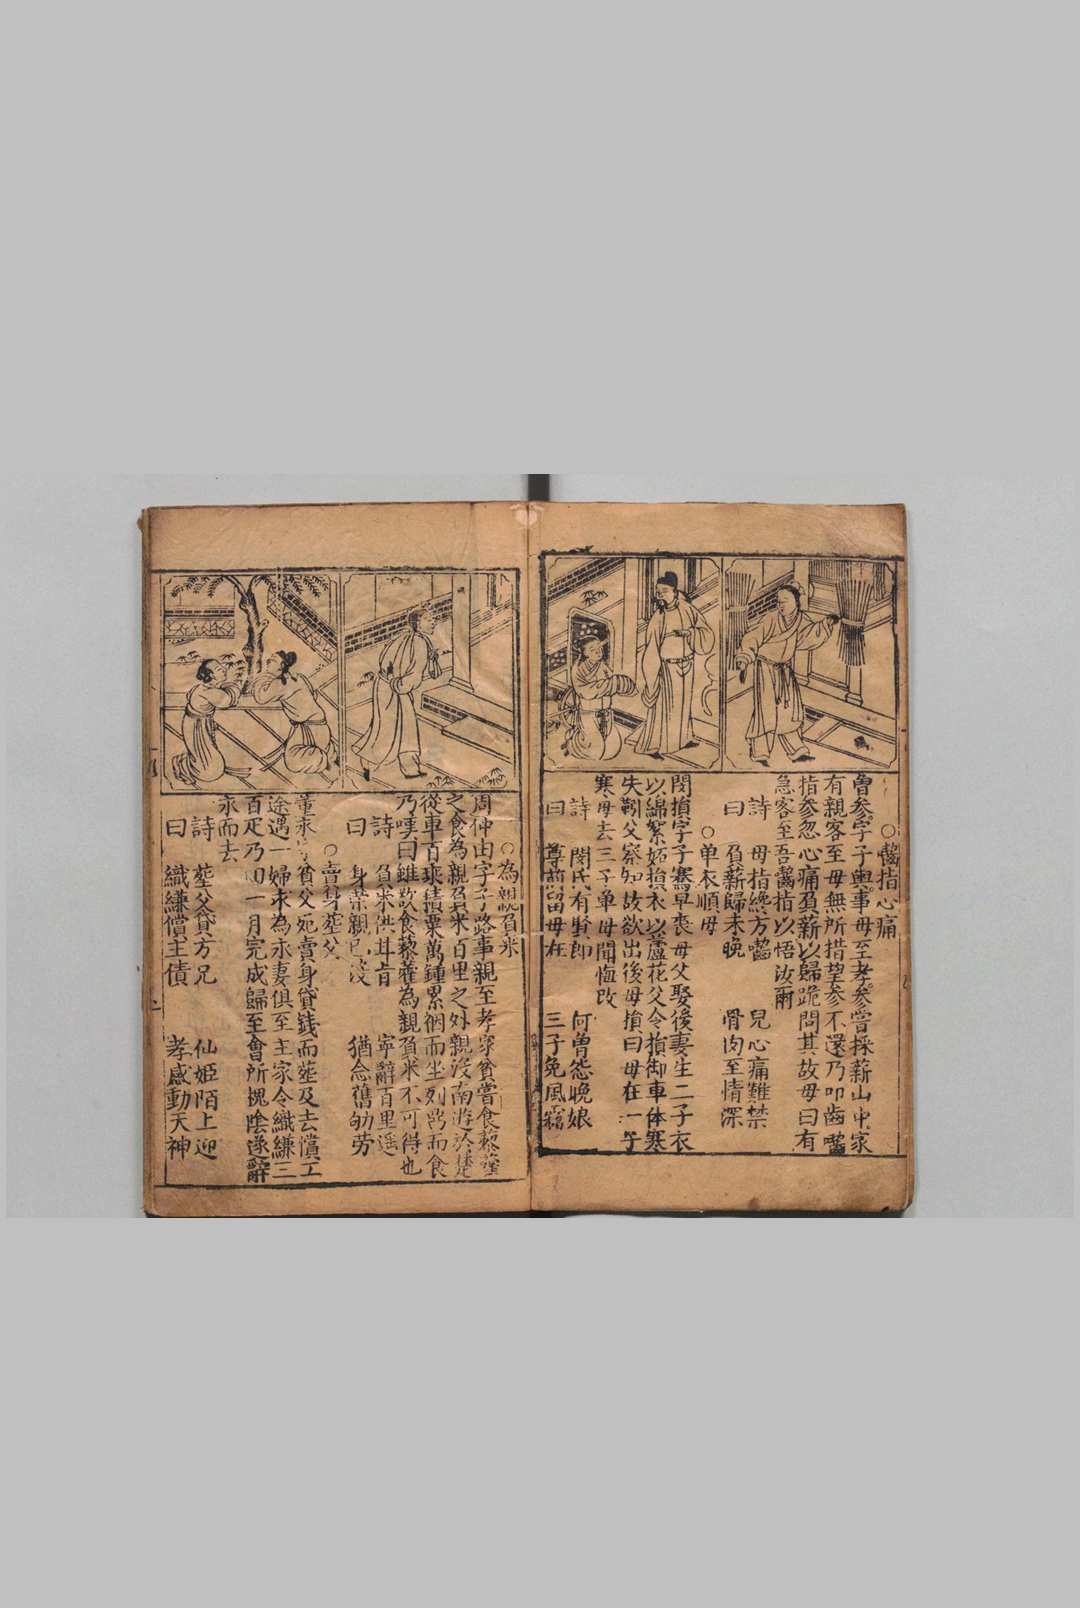 ○齧指心痛
曽參字子輿事母至孝參嘗採薪山中家
有親客至母無所措望參不還乃叩齒齧
指參忽心痛負薪以歸跪問其故母曰有
急客至吾齧指以悟汝爾
詩 母指纔方嚙 兒心痛難禁
曰 負薪歸未晚 骨肉至情深
○单衣順母
閔損字子騫早丧母父娶後妻生二子衣
以綿絮妬損衣以蘆花父令損御車体寒
失靷父察知故欲出後母損曰母在一子
寒母去三子单母聞悔改
詩 閔氏有賢郎 何曽怨晚娘
曰 尊前留母在 三子免風霜
○為親負米
周仲由字子路事親至孝家貧嘗食藜藿
之食為親負米百里之外親没南遊於楚
從車百乘積粟萬鍾累裀而坐列鼎而食
乃嘆曰雖欲食藜藿為親負米不可得也
詩 負米供甘旨 寧辭百里遥
曰 身荣親已没 猶念舊劬劳
○賣身葬父
董永 貧父死賣身貸錢而葬及去償工
途遇一婦求為永妻俱至主家令織縑三
百疋乃回一月完成歸至會所槐陰遂辭
永而去
詩 葬父貸方兄 仙姬陌上迎
曰 織縑償主債 孝感動天神